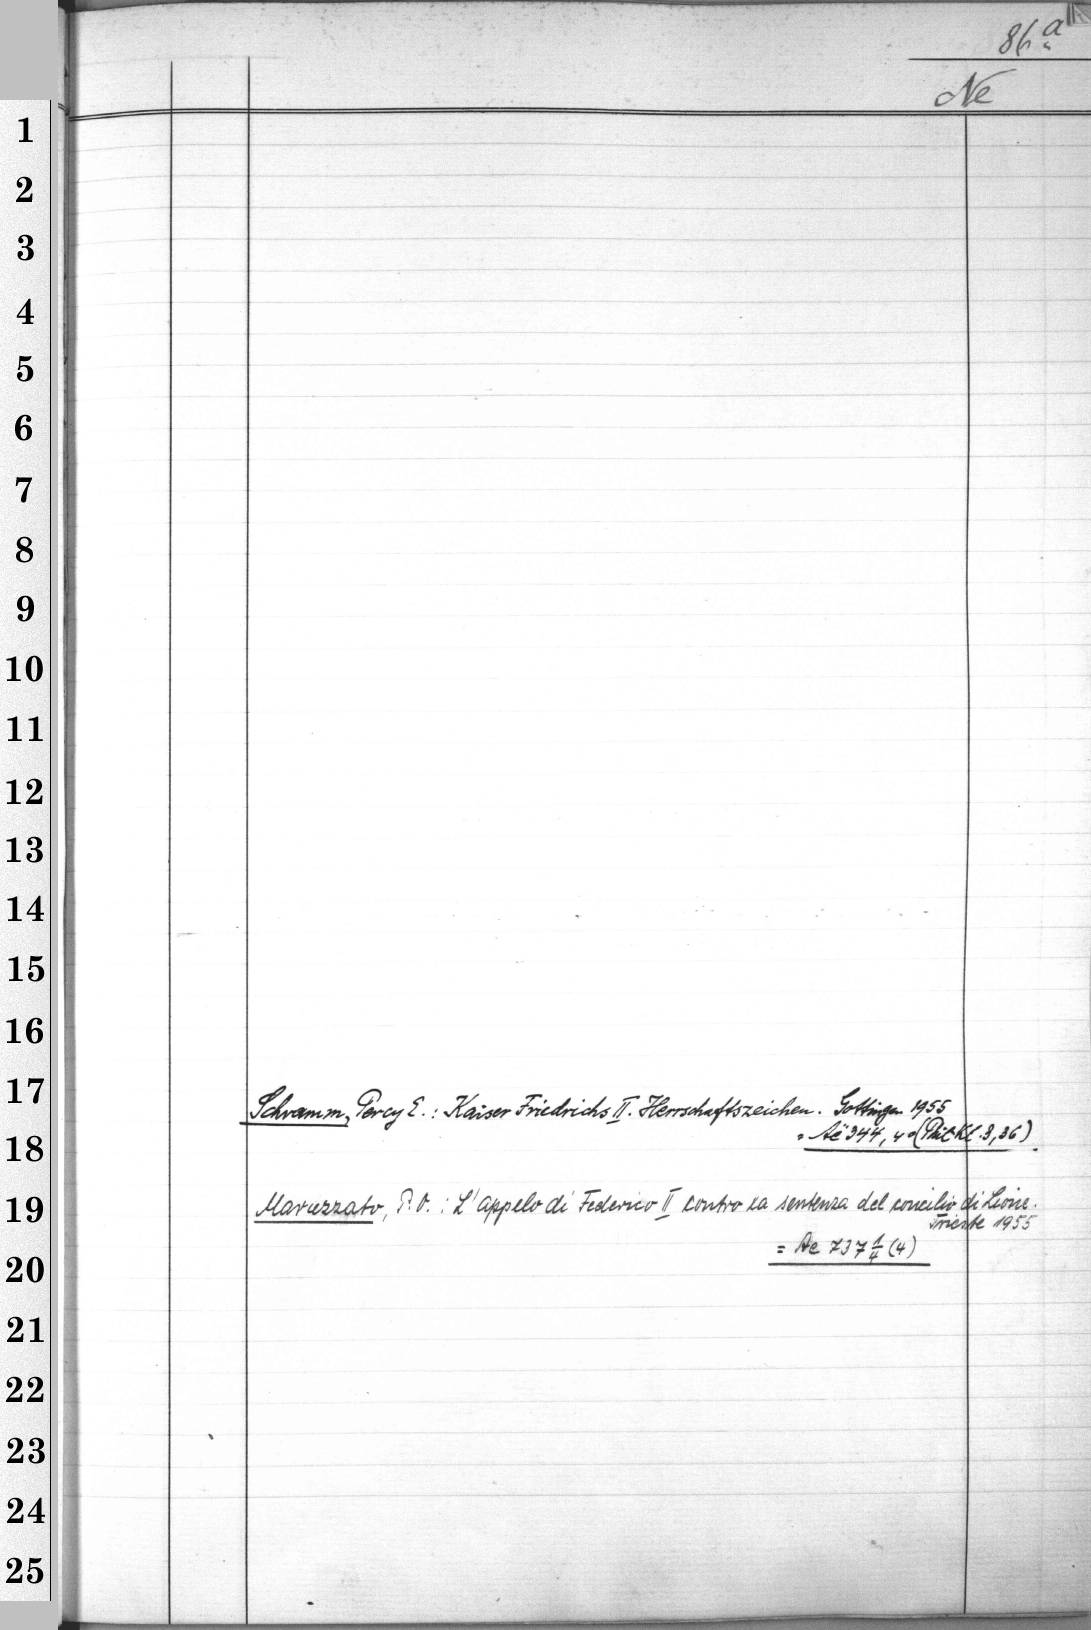 86a
Ne
1
2
3
4
5
6
7
8
9
10
11
12
13
14
15
16
17
Schramm, Percy E.: Kaiser Friedrichs II. Herrschaftszeichen. Gottingen 1955
18
= Ae 344, 4° (Phil. Kl. 3, 36)
19
Maruzzato, P. O.: L'appelo di Federico II contro la sentenza del concilio di Lione.
Trieste 1955
20
= Ae 737 1/4 (4)
21
22
23
24
25